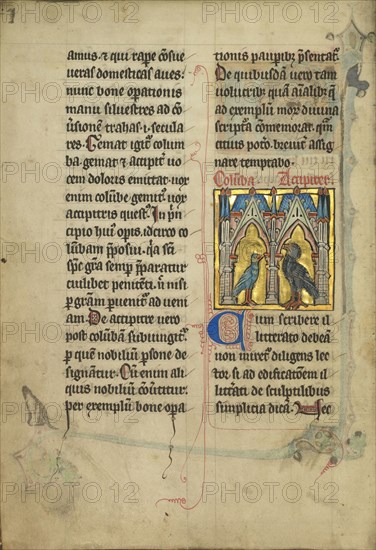 amus. et qui rape consue
ueras domesticas aues.
nunc bone operationis
manu siluestres ad co
uersione trahas. i. secula
res. Gemat igit colum
ba. gemat et accipiter uo
cem doloris emittat. uox
enim columbe gemitus. uox
accipitris questus. In prin
cipio huius operis. idcirco co
lumbam preposui. quia sancti
spiritus gratia semper preparatur
cuilibet penitenti. nisi
per gratiam peruenitur ad ueni
am. De accipitre uero
post columbam subiungitur.
per que nobilium persone de
signantur. Cum enim ali
quis nobilium conuertitur.
per exemplum bone opa
tionis pauperibus presentatur.
De quibusdam uero tam
uolucribus quam animalibus que
ad exemplum morum diuina
scriptura commemorat. quam
citius potero. breuiter assig
nare temptabo.
Columba Accipiter
Cum scribere il
litterato debeam
non miretur diligens lec
tor. si ad edificationem il
litterati de sculptilibus
simplicia dicam. Nec
PHOTO 12